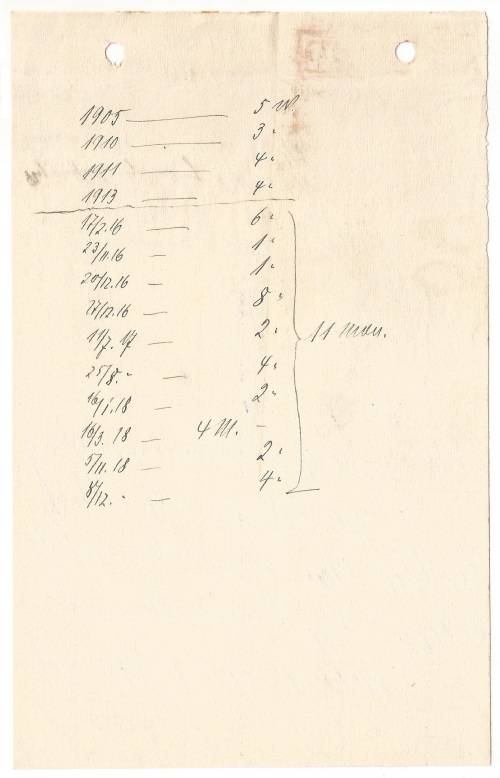 1905 — 5 W.
1910 — 3 "
1911 — 4 "
1913 — 4 "
17/2.16 — 6 "
23/11.16 — 1 "
20/12.16 — 1 "
27/12.16 — 8 "
11/7.17 — 2 " 11 Mon.
25/8. " — 4 "
16/1.18 2 "
16/3.18 — 4 M. -
5/11.18 — 2 "
8/12. " — 4 "